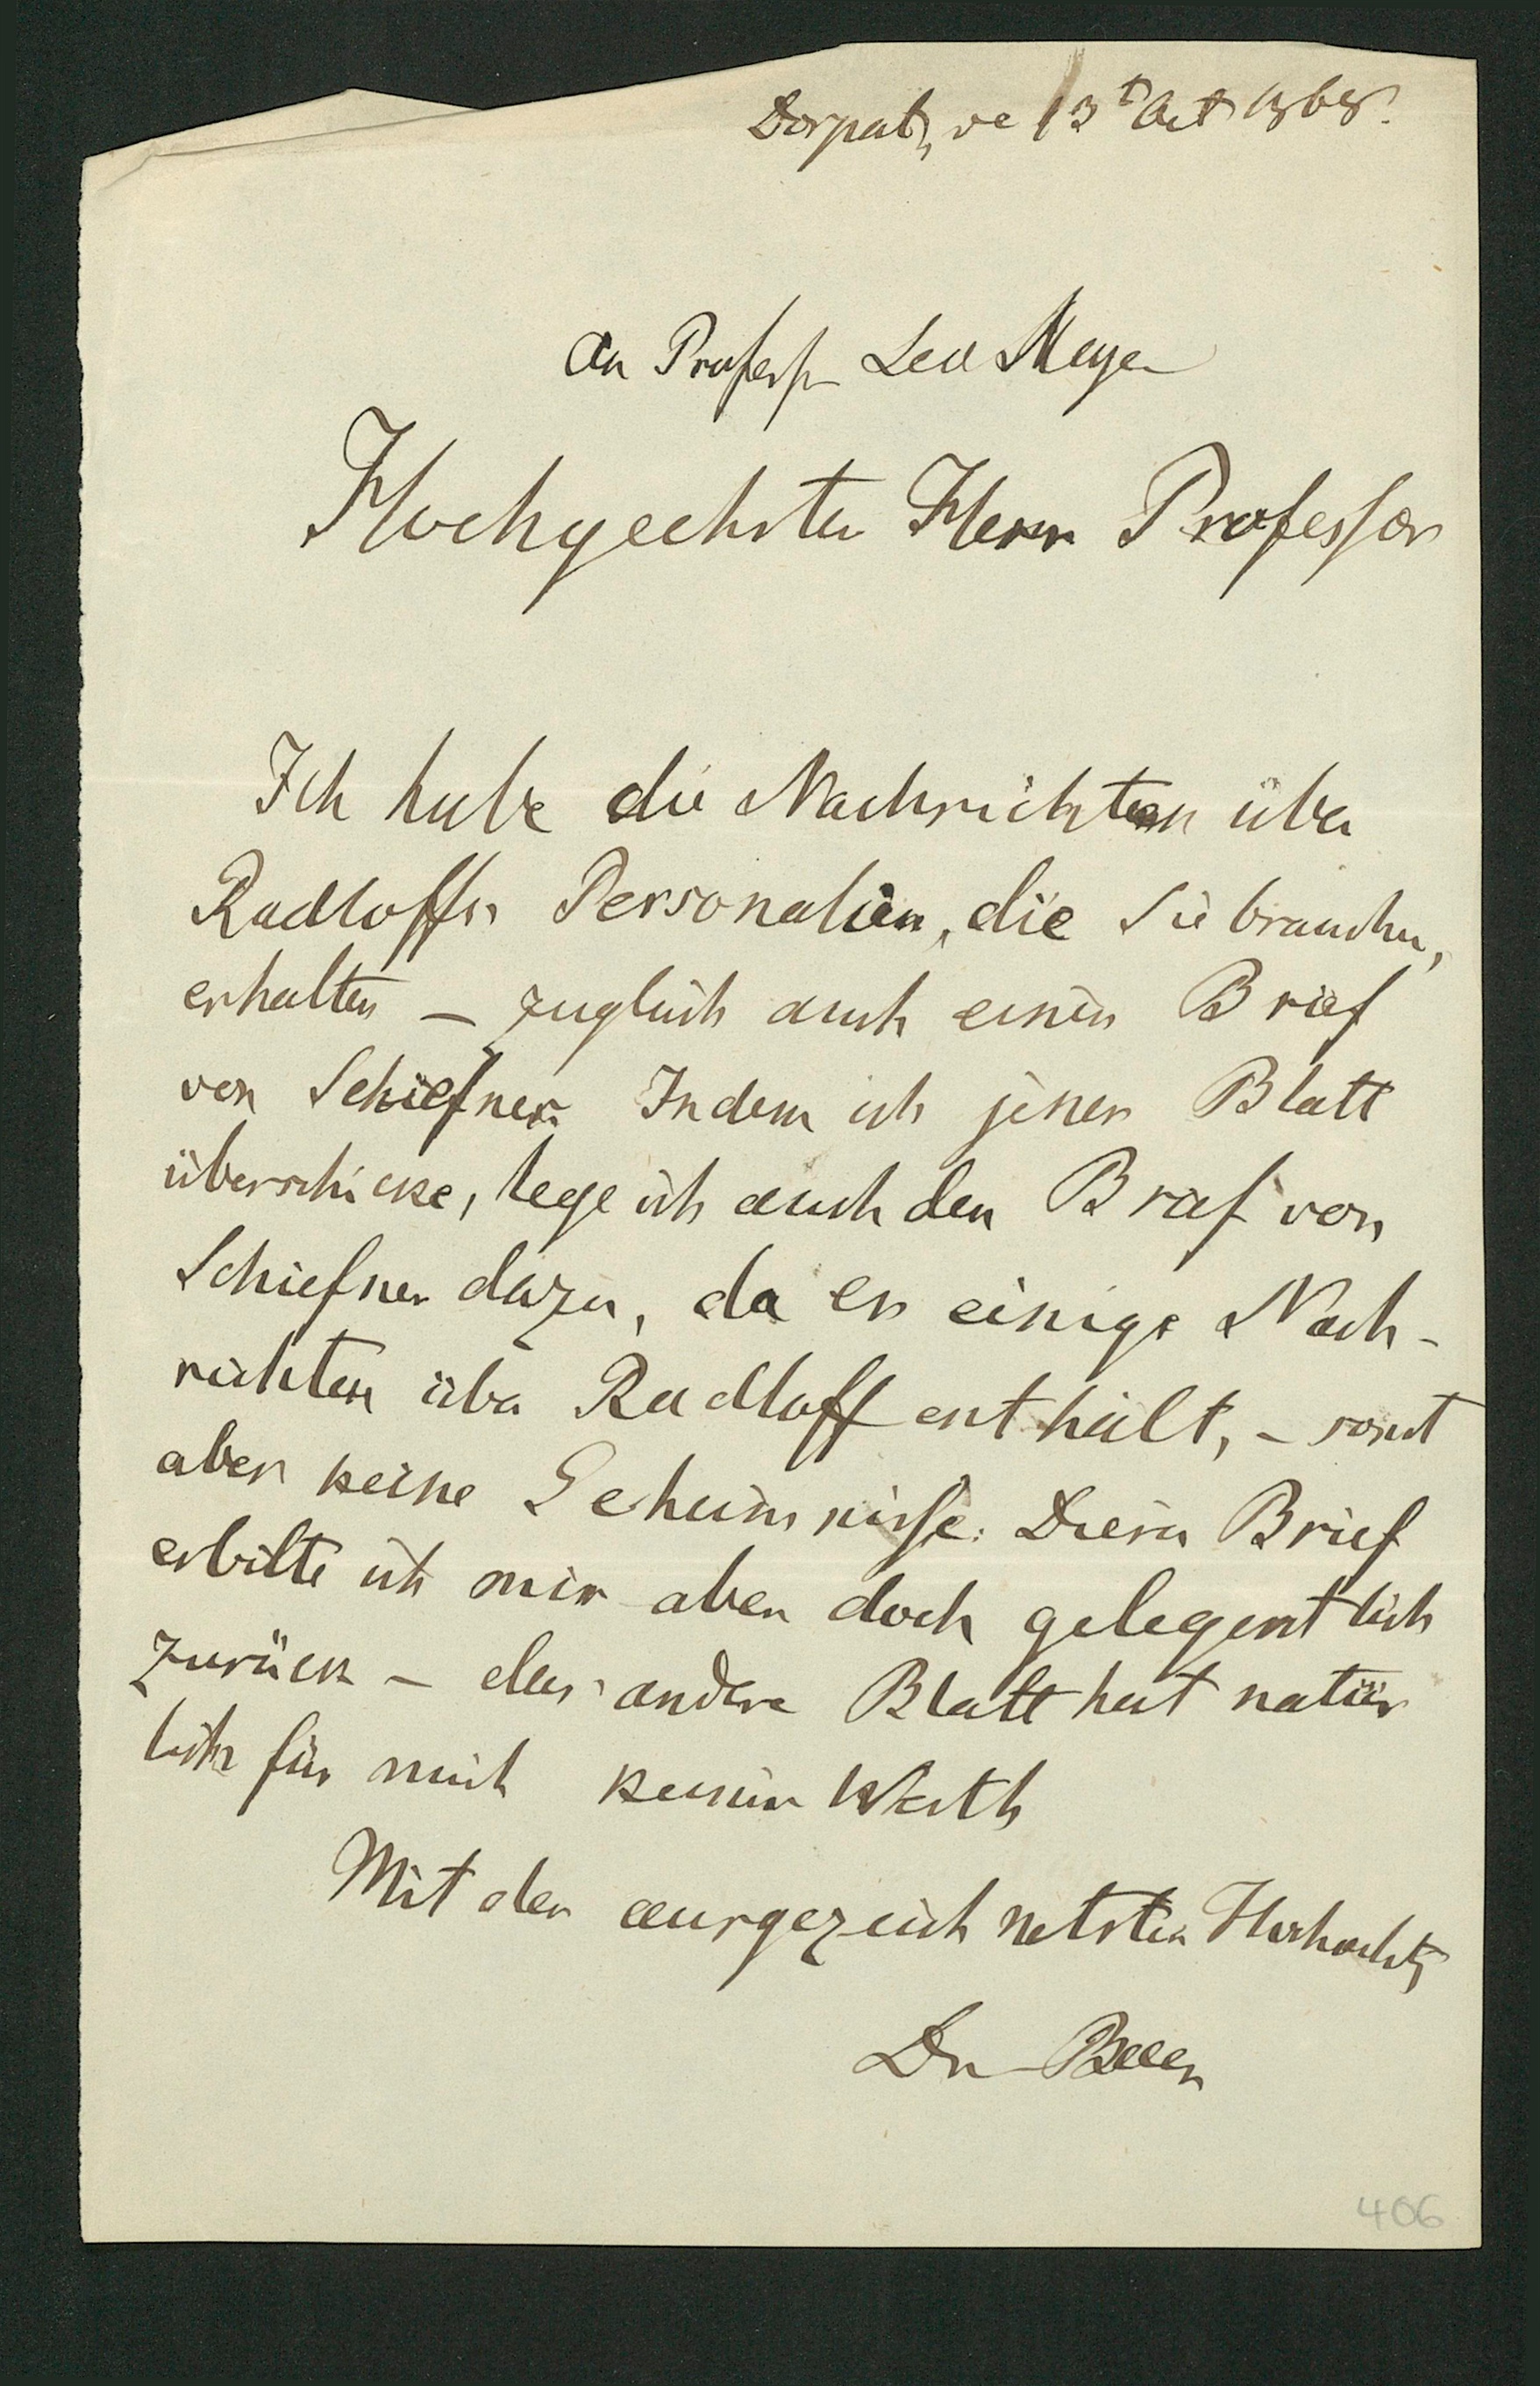 Dorpat, de 13t Oct 1868.
An Professor Leo Meyer
Hochgeehrter Herr Professor
Ich habe die Nachrichten über
Radloffs Personalien, die Sie brauchen,
erhalten – zugleich auch einen Brief
von Schiefner. Indem ich jenes Blatt
überschicke, lege ich auch den Brief von
Schiefner dazu, da er einige Nach-
richten über Radloff enthält, – sonst
aber keine Geheimnisse. Diesen Brief
erbitte ich mir aber doch gelegentlich
zurück – das andere Blatt hat natür
lich für mich keinen Werth
Mit der ausgezeichnetsten Hochachtg
Dr Baer
406